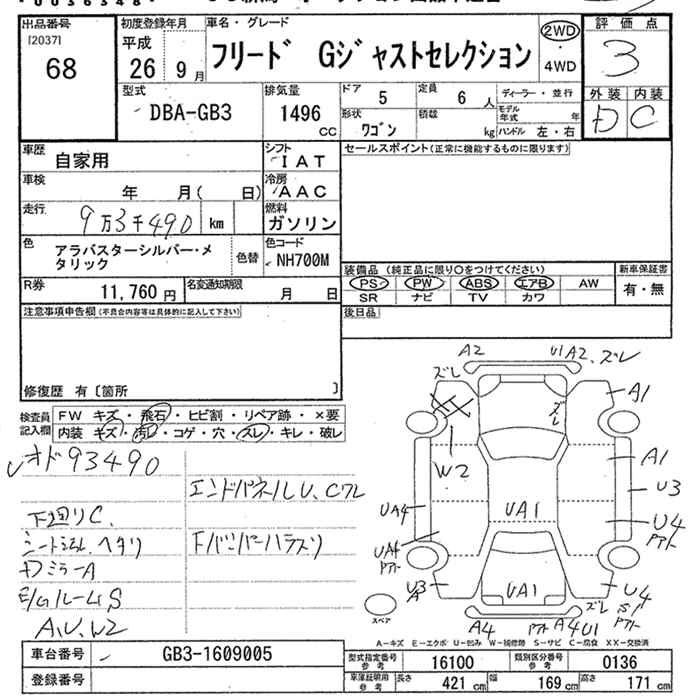 出品番号
[2037]
68
初度登録年月
平成
26 9月
車名・グレード
フリード Gジャストセレクション
2WD
4WD
評価点
3
外装 内装
D C
型式
DBA-GB3
排気量
1496
CC
ドア 5
定員 6 人
形状 ワゴン
積載 kg
ディーラー・並行
モデル年式 年
ハンドル 左・右
車歴
自家用
シフト
IAT
車検
年 月( 日)
冷房
AAC
走行
9万3千490 km
燃料
ガソリン
色
アラバスターシルバー・メタリック
色替
色コード
NH700M
R券
11,760 円
名変通知期限
月 日
セールスポイント(正常に機能するものに限ります)
装備品 (純正品に限り○をつけてください)
PS PW ABS エアB AW
SR ナビ TV カワ
新車保証書
有・無
後日品
注意事項申告欄(不具合内容等は具体的に記入して下さい)
修復歴 有〔箇所 〕
検査員記入欄
FW キズ・飛石・ヒビ割・リペア跡・×要
内装 キズ・汚レ・コゲ・穴・スレ・キレ・破レ
オド93490
エンドパネルU、Cワレ
下廻りC.
ヘタリ
ミラーA
E/GルームS
A,U,W2
A2
ズレ
U1 A2、ズレ
A1
ズレ
W2
A1
U3
UA4
UA1
U4
UA4
U3
A
UA1
U4
ズレ
S1
A4
A4U1
スペア
A-キズ E-エクボ U-凹み W-補修跡 S-サビ C-腐食 XX-交換済
車台番号
GB3-1609005
登録番号
型式指定番号
参考
16100
類別区分番号
参考
0136
車庫証明用
参考
長さ 421 cm
幅 169 cm
高さ 171 cm